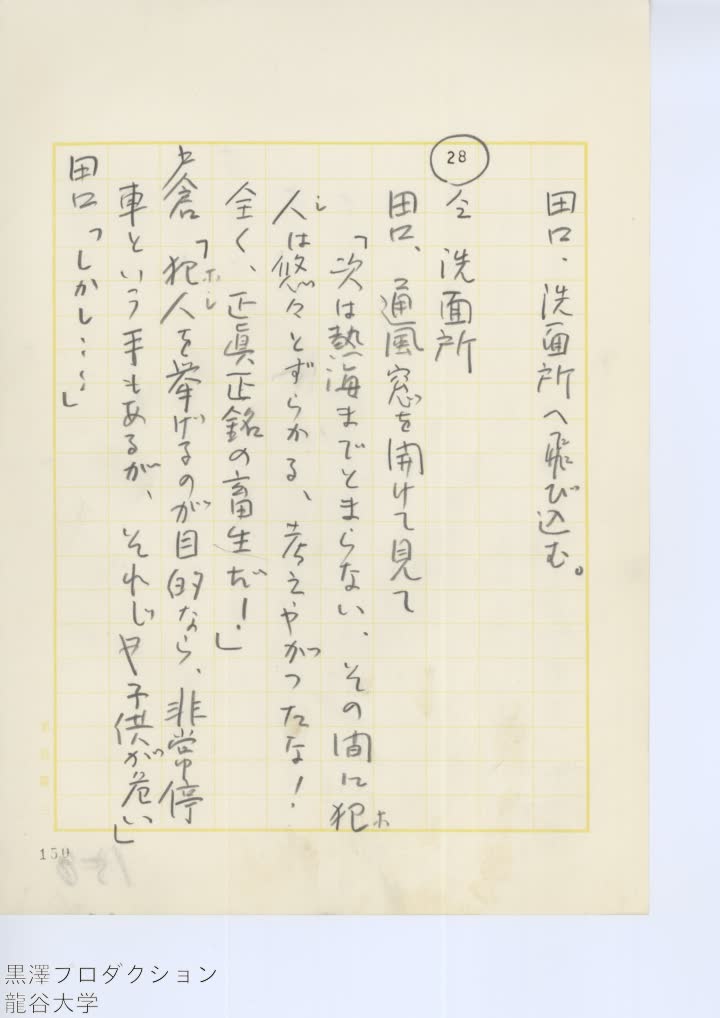 田口、洗面所へ飛び込む。
28
仝 洗面所
田口、通風窓を開けて見て
「次は熱海までとまらない、その間に犯
ホ
人は悠々とずらかる、考えやがつたな！
シ
全く、正眞正銘の畜生だ！」
戸倉「犯人を挙げるのが目的なら、非常停
ホシ
車という手もあるが、それじや子供が危い」
田口「しかし……」
150
黒澤プロダクション
龍谷大学